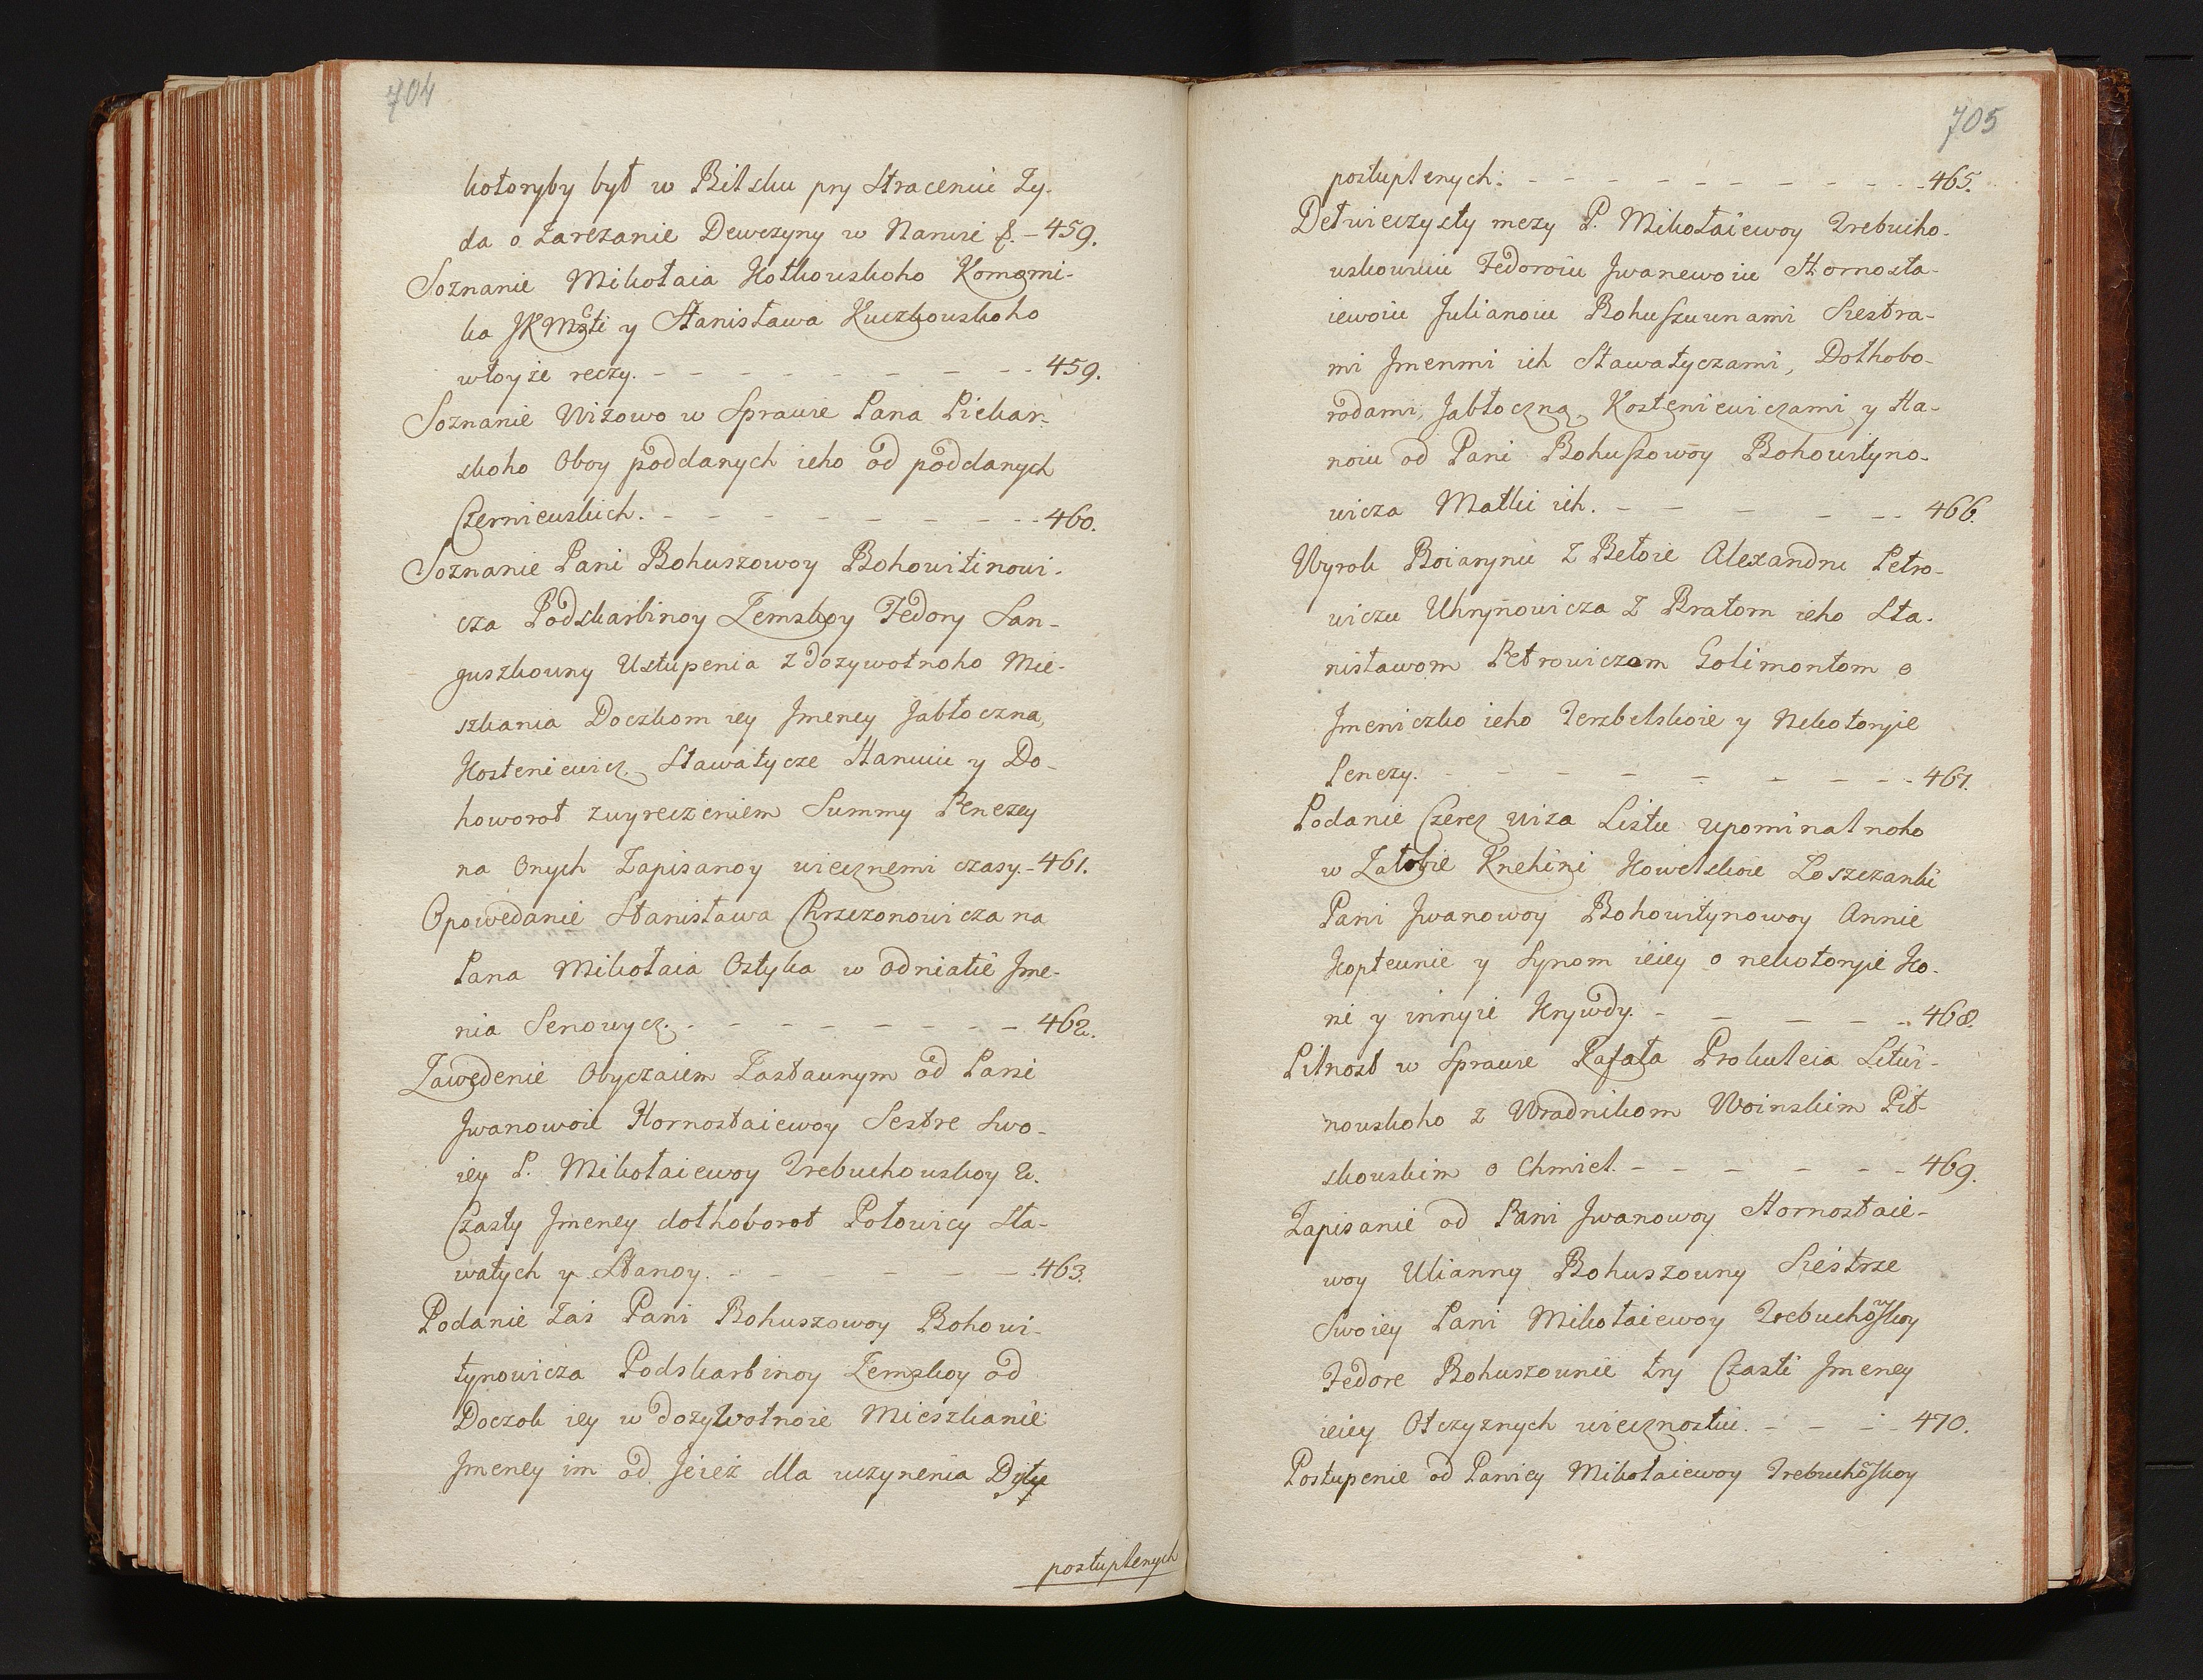 704
kotoryby był w Bilsku pry Straceniu Ży-
da o Zarezanie Dewczyny w Narwi f. - 459.
Soznanie Mikołaia Kotkouskoho Komorni-
ka JKMsti y Stanisława Kuczkouskoho
wtoyże reczy. - - - - - - - - - 459.
Soznanie Wiżowo w Sprawie Pana Piekar-
skoho Oboy poddanych ieho od poddanych
Czernieuskich. - - - - - - - - 460.
Soznanie Pani Bohuszowoy Bohowitinowi-
cza Podskarbinoy Zemskoy Fedory San-
guszkouny Ustupenia z dożywotnoho Mie-
szkania Doczkom iey Jmeney Jabłoczna,
Kosteniewicz Sławatycze Hanuiu y Do-
howorot zwyreczeniem Summy Penezey
na Onych Zapisanoy wiecznemi czasy. - 461.
Opowedanie Stanisława Chrszczonowicza na
Pana Mikołaia Ostyka w odniatie Jme-
nia Senowycz. - - - - - - - - 462.
Zawedenie Obyczaiem Zastaunym od Pani
Jwanowoie Hornostaiewoy Sestre Swo-
iey P. Mikołaiewoy Trebuchouskoy 2.
Czasty Jmeney dołhoborot Połowicy Sła-
watych y Stanoy. - - - - - - - 463.
Podanie Zaś Pani Bohuszowoy Bohowi-
tynowicza Podskarbinoy Zemskoy od
Doczok iey w dożywotnoie Mieszkanie
Jmeney im od Jeież dla uczynenia Dyłu
postuplenych
705
postuplenych. - - - - - - - - - 465.
Deł wieczysty mezy P. Mikołaiewoy Trebucho-
uskouniu Fedoroiu Jwanewoiu Hornosta-
iewoiu Julianoiu Bohuszuunami Siestra-
mi Jmenmi ich Sławatyczami, Dołhobo-
rodami, Jabłoczną, Kosteniewiczami y Ha-
noiu od Pani Bohuszowoy Bohowityno-
wicza Matki ich. - - - - - - 466.
Wyrok Boiarynu z Bełoie Alexandru Petro-
wiczu Uhrynowicza z Bratom ieho Sta-
nisławom Petrowiczom Golimontom o
Jmeniczko ieho Terebelskoie y Nekotoryie
Penezy. - - - - - - - - - 467.
Podanie Czerez wiża Listu upominalnoho
w Żałobie Knehini Kowelskoie Zoszczanki
Pani Jwanowoy Bohowitynowoy Annie
Kopteunie y Synom ieiey o nekotoryie Ko-
ni y innyie Krywdy. - - - - - - 468.
Pilnost w Sprawie Rafała Prokuleia Litwi-
nouskoho z Wradnikom Woinskim Pit-
skouskim o Chmiel. - - - - - - 469.
Zapisanie od Pani Jwanowoy Hornostaie-
woy Ulianny Bohuszouny Siestrze
Swoiey Pani Mikołaiewoy Trebuchowskoy
Fedore Bohuszounie try Czasti Jmeney
ieiey Otczyznych wiecznostiu. - - - - 470.
Postupenie od Paniey Mikołaiewoy Trebuchoskoy